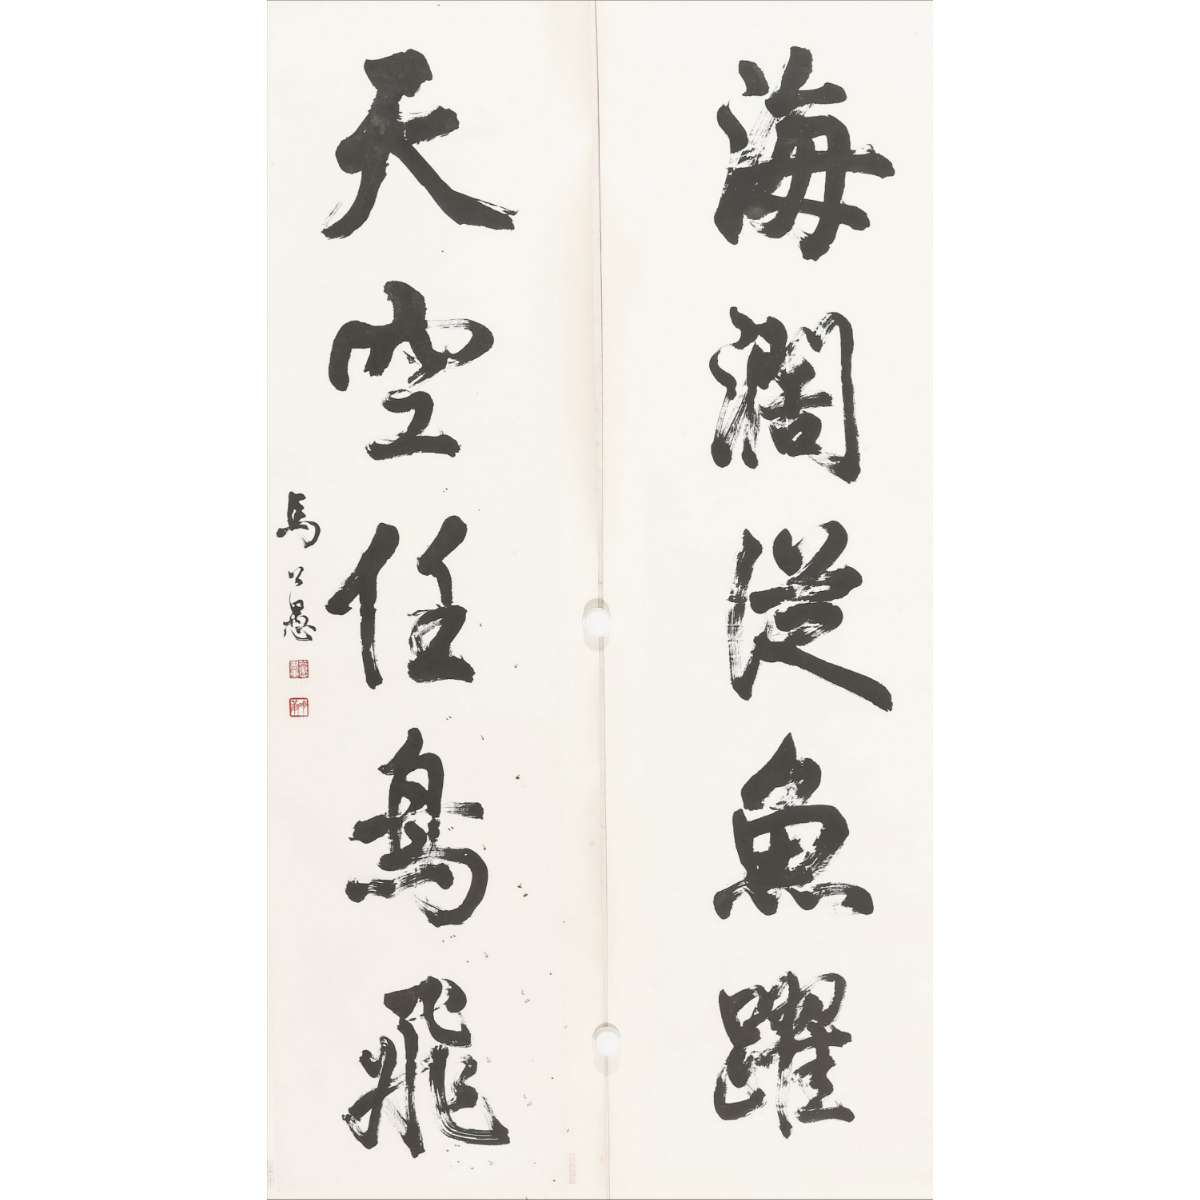 海闊從魚躍
天空任鳥飛
馬公愚